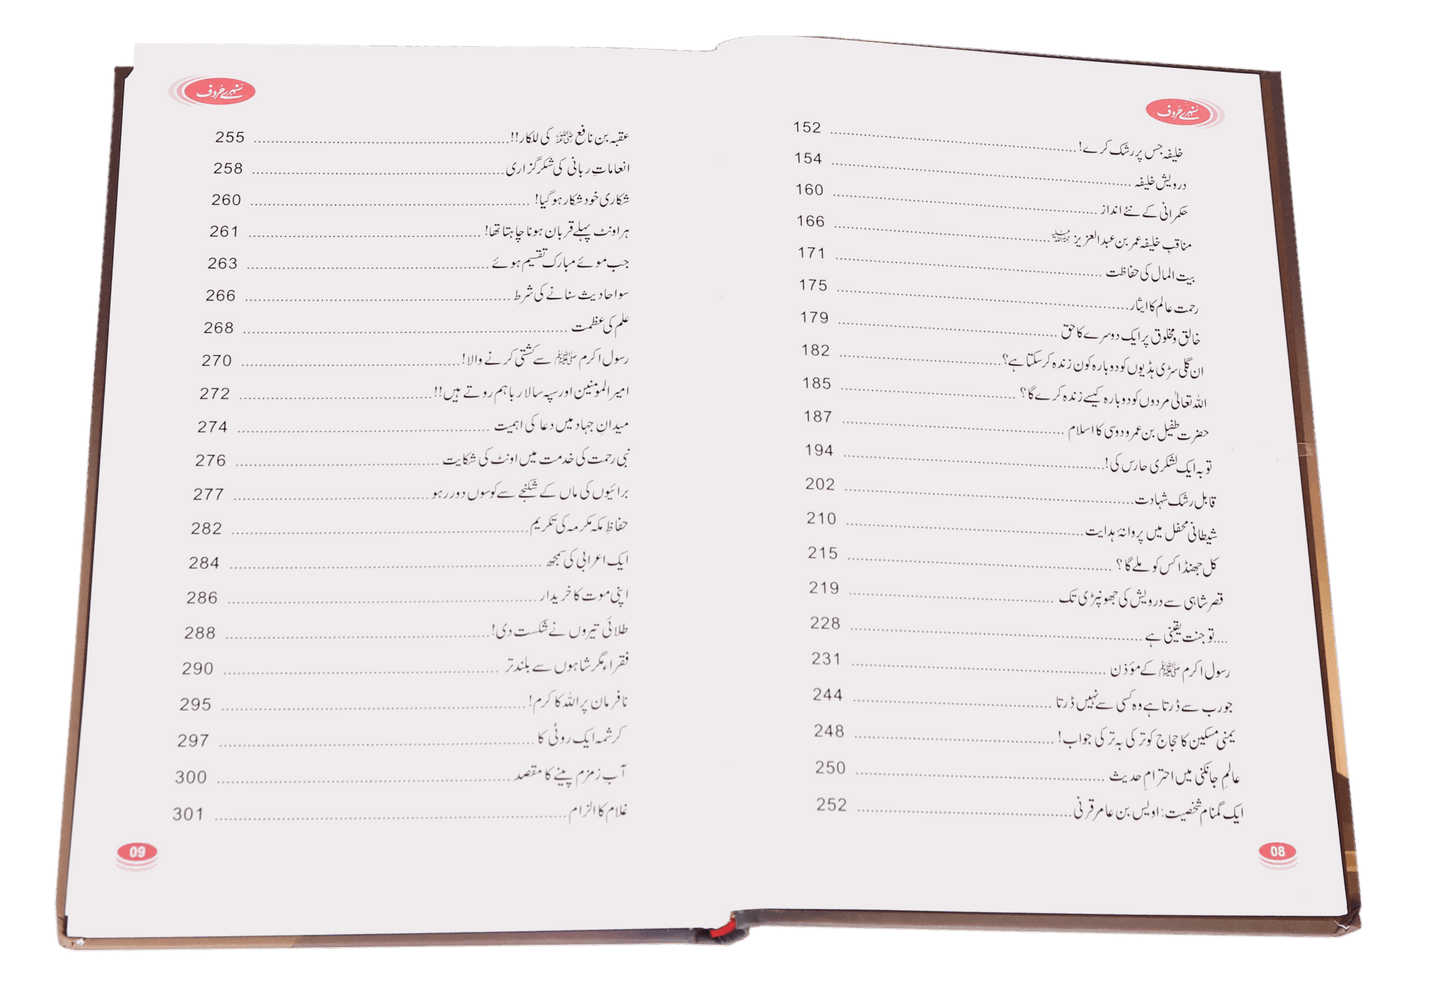 سنہرے حروف
خلیفہ جس پر رشک کرے! 152
درویش خلیفہ 154
حکمرانی کے نئے انداز 160
مناقبِ خلیفہ عمر بن عبدالعزیز رحمہ اللہ 166
بیت المال کی حفاظت 171
رحمت عالم کا ایثار 175
خالق و مخلوق پر ایک دوسرے کا حق 179
ان گلی سڑی ہڈیوں کو دوبارہ کون زندہ کر سکتا ہے؟ 182
اللہ تعالیٰ مردوں کو دوبارہ کیسے زندہ کرے گا؟ 185
حضرت طفیل بن عمرو دوسی کا اسلام 187
توبہ ایک لشکری حارس کی! 194
قابل رشک شہادت 202
شیطانی محفل میں پروانۂ ہدایت 210
کل جھنڈا کس کو ملے گا؟ 215
قصر شاہی سے درویش کی جھونپڑی تک 219
....تو جنت یقینی ہے 228
رسول اکرم ﷺ کے مؤذن 231
جو رب سے ڈرتا ہے وہ کسی سے نہیں ڈرتا 244
یمنی مسکین کا حجاج کو ترکی بہ ترکی جواب! 248
عالمِ جانکنی میں احترامِ حدیث 250
ایک گمنام شخصیت: اویس بن عامر قرنی 252
08
سنہرے حروف
عقبہ بن نافع ﷺ کی للکار!! 255
انعاماتِ ربانی کی شکرگزاری 258
شکاری خود شکار ہو گیا! 260
ہر اونٹ پہلے قربان ہونا چاہتا تھا! 261
جب موئے مبارک تقسیم ہوئے 263
سو احادیث سنانے کی شرط 266
علم کی عظمت 268
رسول اکرم ﷺ سے کشتی کرنے والا! 270
امیر المؤمنین اور سپہ سالار باہم روتے ہیں!! 272
میدان جہاد میں دعا کی اہمیت 274
نبی رحمت کی خدمت میں اونٹ کی شکایت 276
برائیوں کی ماں کے شکنجے سے کوسوں دور رہو 277
حفاظِ مکہ مکرمہ کی تکریم 282
ایک اعرابی کی سمجھ 284
اپنی موت کا خریدار 286
طلائی تیروں نے شکست دی! 288
فقراء مگر شاہوں سے بلند تر 290
نافرمان پر اللہ کا کرم! 295
کرشمہ ایک روٹی کا 297
آب زمزم پینے کا مقصد 300
غلام کا الزام 301
09